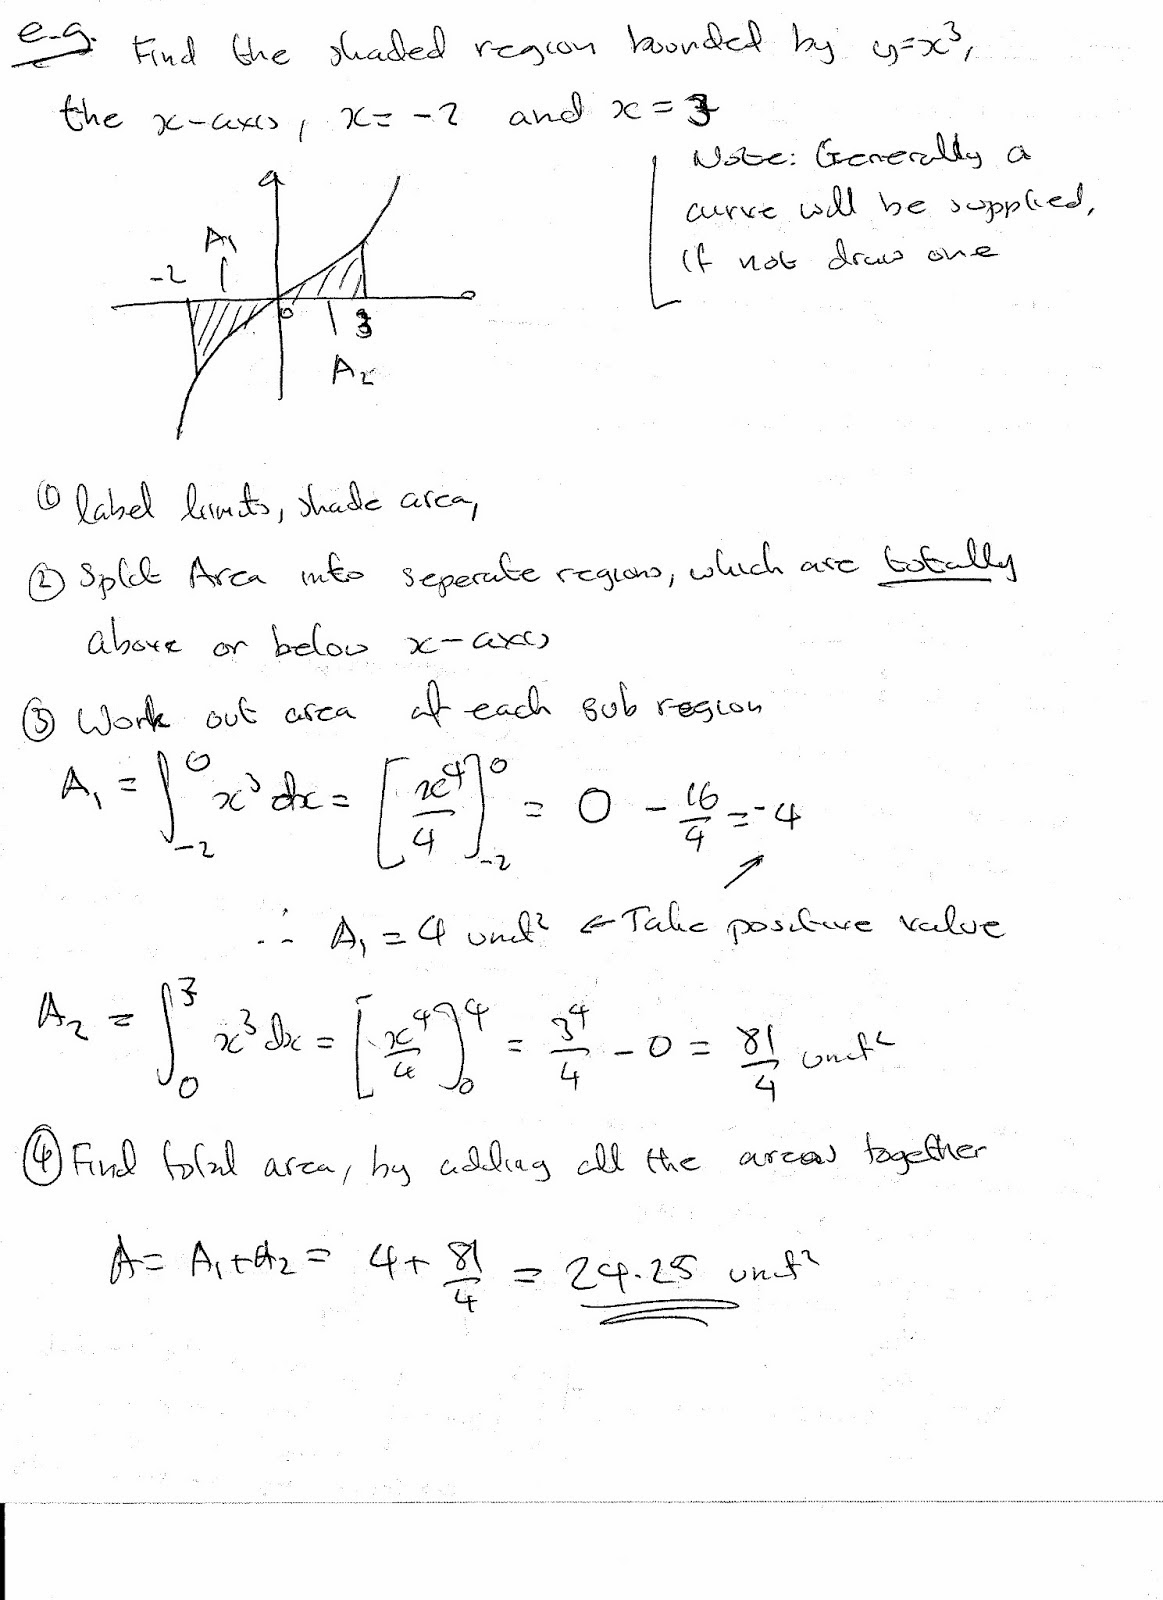 e.g. Find the shaded region bounded by y=x³,
the x-axis, x=-2 and x=3
Note: Generally a
curve will be supplied,
if not draw one
A₁
-2
0
3
A₂
① label limits, shade area,
② Split Area into seperate regions, which are totally
above or below x-axis
③ Work out area of each sub region
A₁ = ∫₋₂⁰ x³ dx = [x⁴/4]₋₂⁰ = 0 - 16/4 = -4
∴ A₁ = 4 unit² ← Take positive value
A₂ = ∫₀³ x³ dx = [x⁴/4]₀⁴ = 3⁴/4 - 0 = 81/4 unit²
④ Find total area, by adding all the areas together
A = A₁+A₂ = 4 + 81/4 = 24.25 unit²